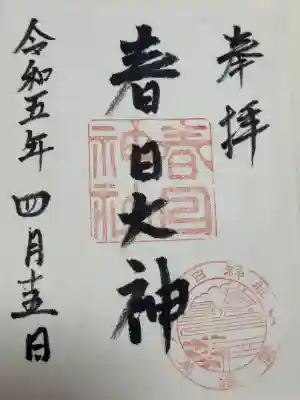 奉拝
春日大神
春日
神社
令和五年四月十五日